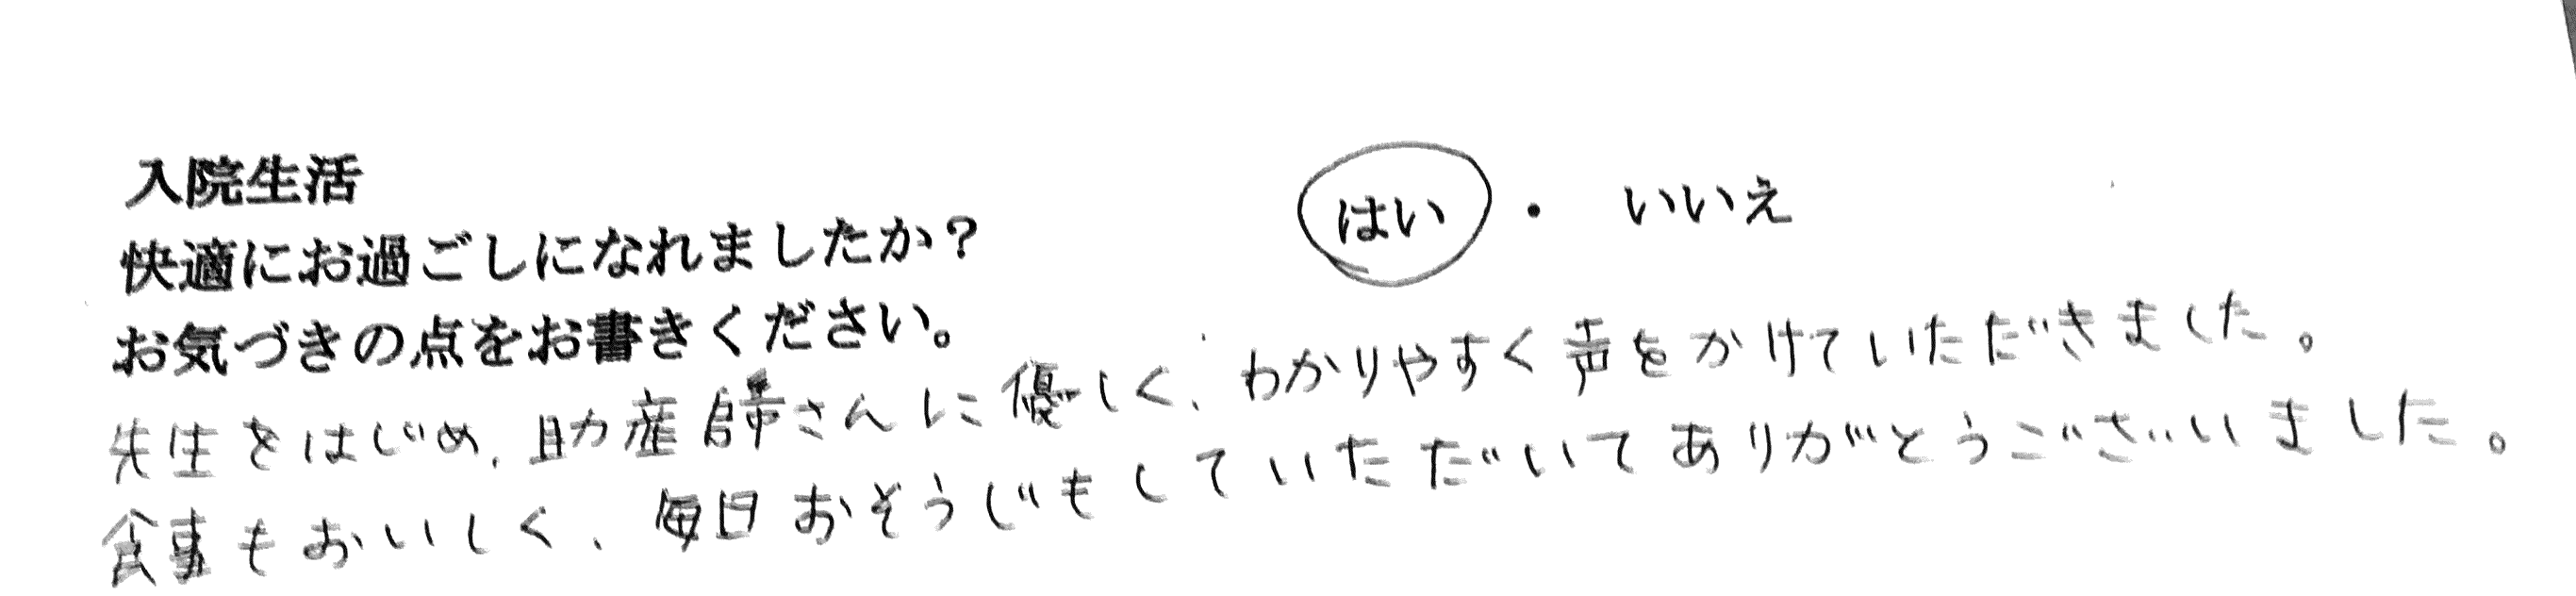 入院生活
快適にお過ごしになれましたか? はい ・ いいえ
お気づきの点をお書きください。
先生をはじめ、助産師さんに優しく、わかりやすく声をかけていただきました。
食事もおいしく、毎日おそうじもしていただいてありがとうございました。